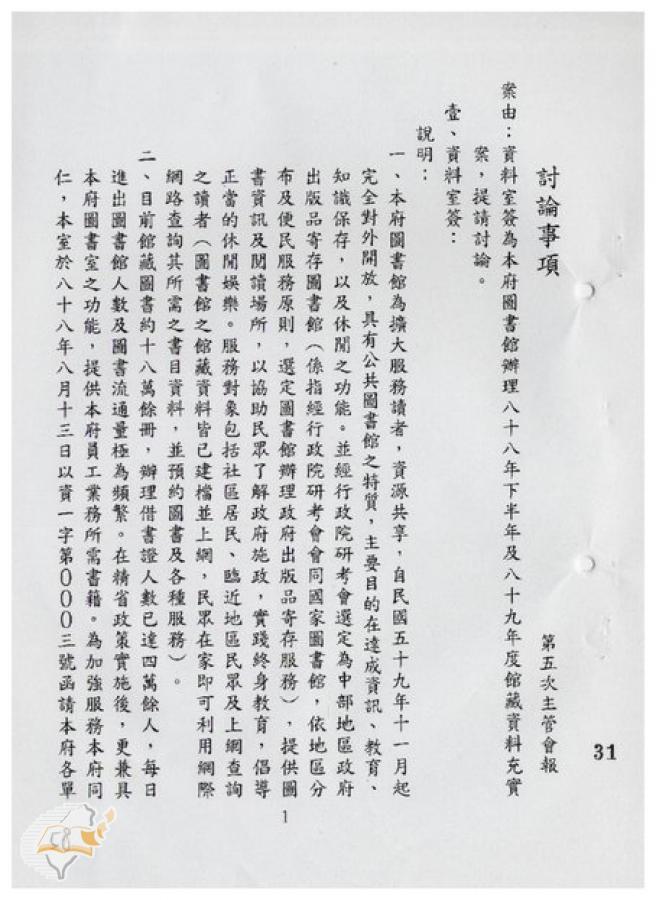 討論事項
第五次主管會報
31
案由：資料室簽為本府圖書館辦理八十八年下半年及八十九年度館藏資料充實
案，提請討論。
壹、資料室簽：
說明：
一、本府圖書館為擴大服務讀者，資源共享，自民國五十九年十一月起
完全對外開放，具有公共圖書館之特質，主要目的在達成資訊、教育、
知識保存，以及休閒之功能。並經行政院研考會選定為中部地區政府
出版品寄存圖書館（係指經行政院研考會會同國家圖書館，依地區分
布及便民服務原則，選定圖書館辦理政府出版品寄存服務），提供圖
書資訊及閱讀場所，以協助民眾了解政府施政，實踐終身教育，倡導
正當的休閒娛樂。服務對象包括社區居民、臨近地區民眾及上網查詢
之讀者（圖書館之館藏資料皆已建檔並上網，民眾在家即可利用網際
網路查詢其所需之書目資料，並預約圖書及各種服務）。
二、目前館藏圖書約十八萬餘冊，辦理借書證人數已達四萬餘人，每日
進出圖書館人數及圖書流通量極為頻繁。在精省政策實施後，更兼具
本府圖書室之功能，提供本府員工業務所需書籍。為加強服務本府同
仁，本室於八十八年八月十三日以資一字第０００三號函請本府各單
1